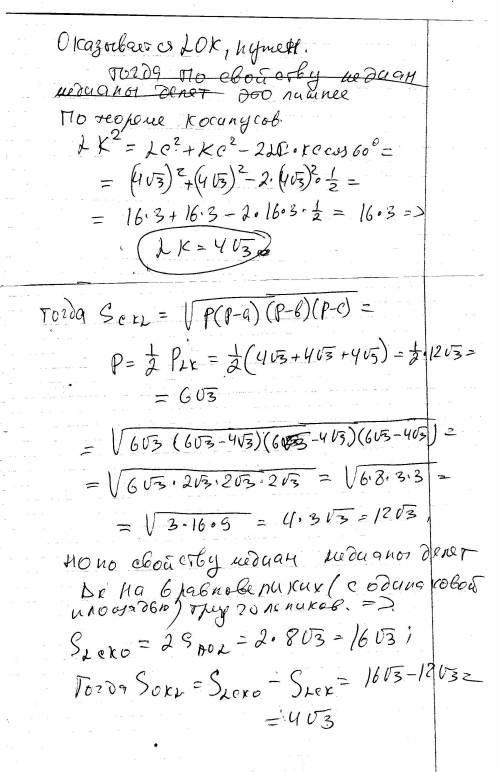 Оказывается LOK, нужен.
тогда по свойству медиан
медианы делят это лишнее
По теореме косинусов.
LK² = LC² + KC² - 2LC·KC cos 60° =
= (4√3)² + (4√3)² - 2·(4√3)²·1/2 =
= 16·3 + 16·3 - 2·16·3·1/2 = 16·3 =>
LK = 4√3
тогда S_CKL = √(P(P-a)(P-b)(P-c)) =
P = 1/2 P_LK = 1/2(4√3+4√3+4√3) = 1/2·12√3 =
= 6√3
= √(6√3(6√3-4√3)(6√3-4√3)(6√3-4√3)) =
= √(6√3·2√3·2√3·2√3) = √(6·8·3·3) =
= √(3·16·9) = 4·3√3 = 12√3,
но по свойству медиан медианы делят
Δк на 6 равновеликих (с одинаковой
площадью) треугольников. =>
S_LCKO = 2S_AOL = 2·8√3 = 16√3;
Тогда S_OKL = S_LCKO - S_LCK = 16√3 - 12√3 =
= 4√3